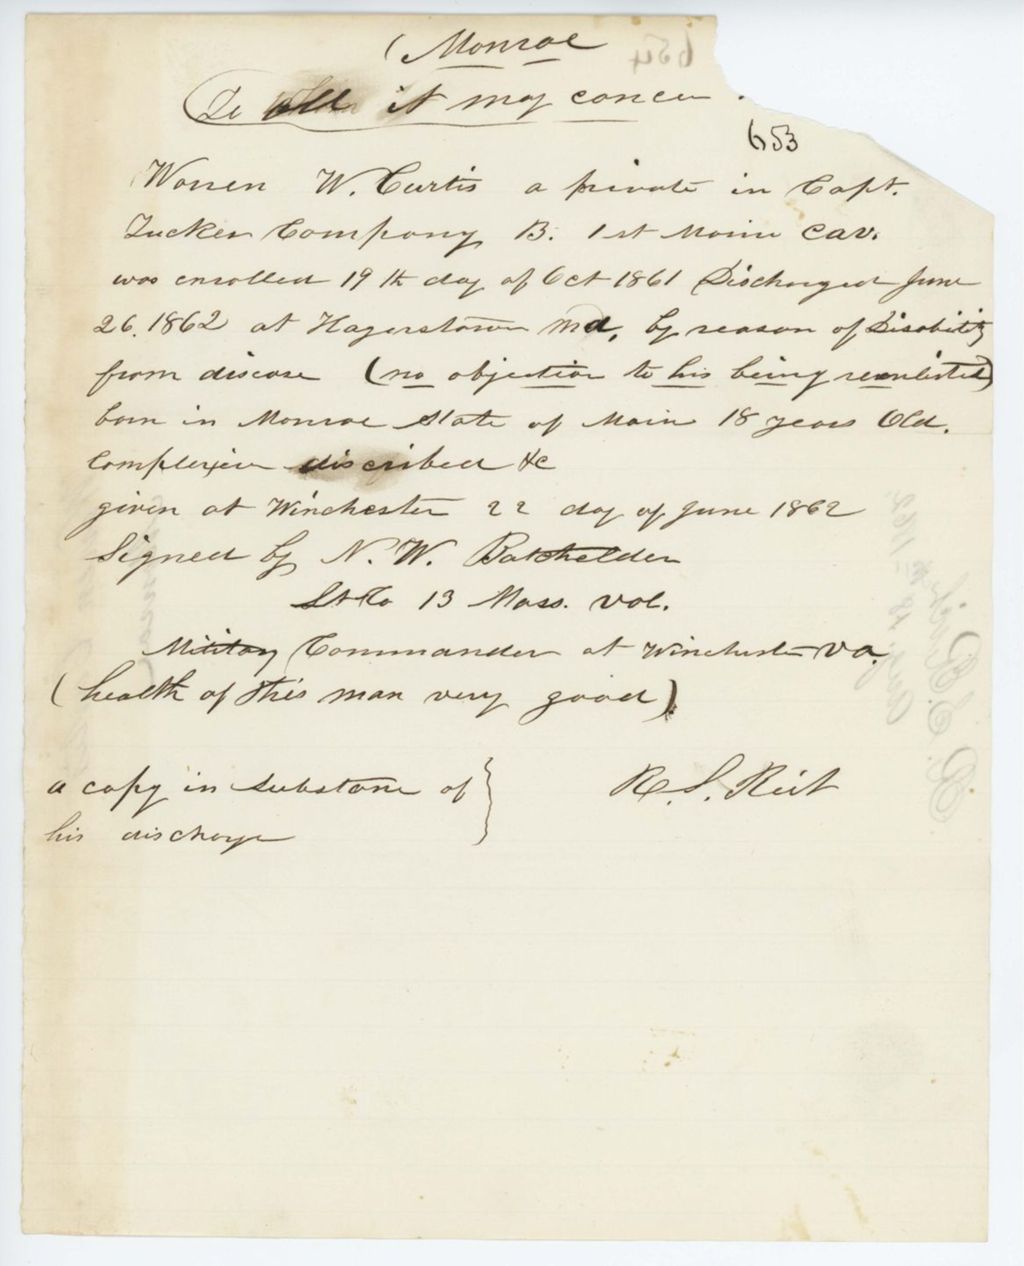 (Monroe
654
To all it may concern
653
Warren W. Curtis a private in Capt.
Tucker Company B. 1st Maine Cav.
was enrolled 19th day of Oct 1861 Discharged June
26, 1862 at Hagerstown Md, by reason of Disability
from disease (no objection to his being reenlisted)
born in Monroe State of Main 18 years Old.
Complexion discribed &c
given at Winchester 22 day of June 1862
Signed by N. W. Batchelder
Lt Co 13 Mass. Vol.
Military Commander at Winchester Va.
(health of this man very good).
a copy in substance of
his discharge
R. S. Rich